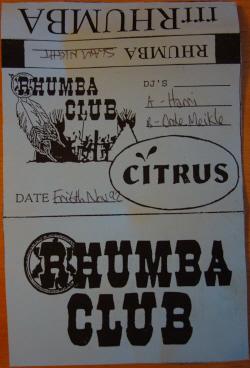 RHUMBA
RHUMBA
SLAM NIGHT
RHUMBA
CLUB
DJ'S
A - Harri
B - Orde Meikle
CITRUS
DATE Fri 6th Nov 92
RHUMBA
CLUB